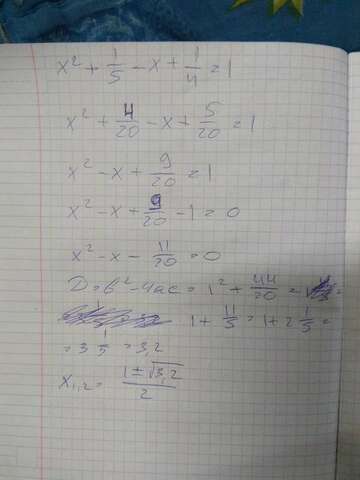 x² + 1/5 - x + 1/4 = 1
x² + 4/20 - x + 5/20 = 1
x² - x + 9/20 = 1
x² - x + 9/20 - 1 = 0
x² - x - 11/20 = 0
D = b² - 4ac = 1² + 44/20 =
1 + 11/5 = 1 + 2 1/5 =
= 3 1/5 = 3,2
x₁,₂ = (1 ± √3,2)/2